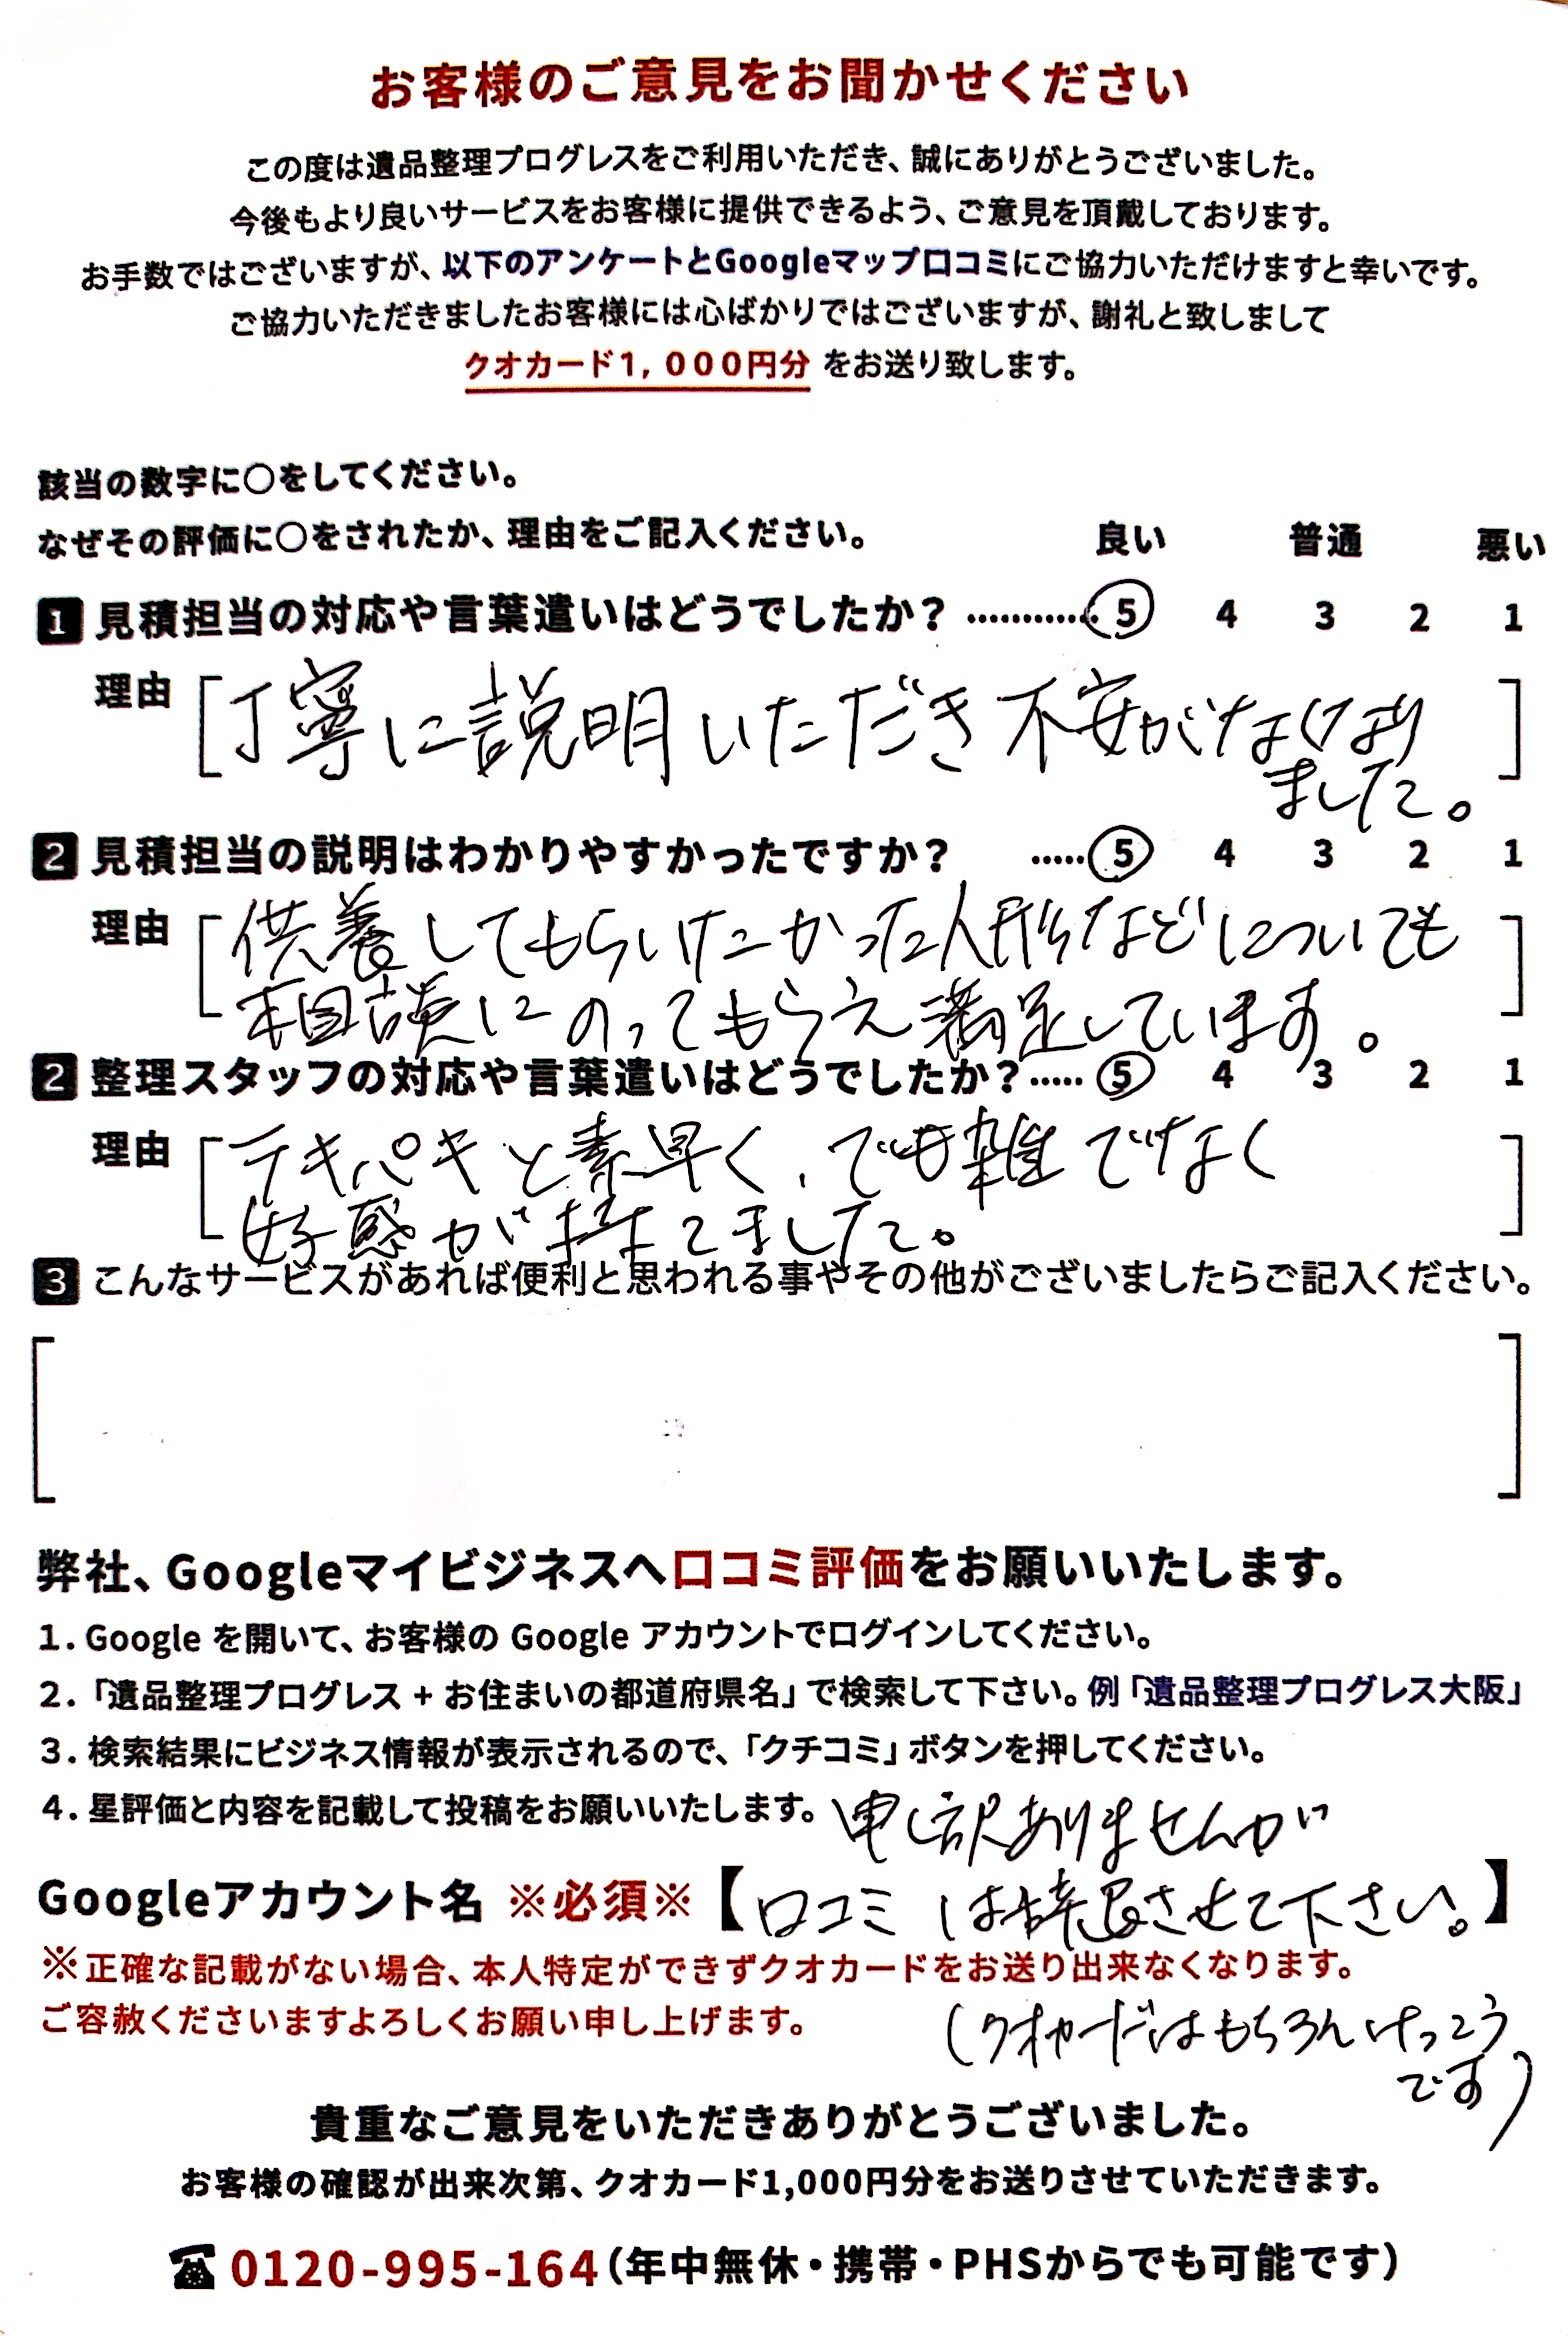 お客様のご意見をお聞かせください
この度は遺品整理プログレスをご利用いただき、誠にありがとうございました。
今後もより良いサービスをお客様に提供できるよう、ご意見を頂戴しております。
お手数ではございますが、以下のアンケートとGoogleマップ口コミにご協力いただけますと幸いです。
ご協力いただきましたお客様には心ばかりではございますが、謝礼と致しまして
クオカード1,000円分 をお送り致します。
該当の数字に○をしてください。
なぜその評価に○をされたか、理由をご記入ください。 良い 普通 悪い
1 見積担当の対応や言葉遣いはどうでしたか? ............ 5 4 3 2 1
理由 [丁寧に説明いただき不安がなくなり]
ました。
2 見積担当の説明はわかりやすかったですか? ..... 5 4 3 2 1
理由 [供養してもらいたかった人形などについても
相談にのってもらえ満足しています。]
2 整理スタッフの対応や言葉遣いはどうでしたか? ..... 5 4 3 2 1
理由 [テキパキと素早く、でも雑でなく
好感が持てました。]
3 こんなサービスがあれば便利と思われる事やその他がございましたらご記入ください。
[ ]
弊社、Googleマイビジネスへ口コミ評価をお願いいたします。
1. Google を開いて、お客様の Google アカウントでログインしてください。
2. 「遺品整理プログレス + お住まいの都道府県名」で検索して下さい。例「遺品整理プログレス大阪」
3. 検索結果にビジネス情報が表示されるので、「クチコミ」ボタンを押してください。
4. 星評価と内容を記載して投稿をお願いいたします。 申し訳ありませんが
Googleアカウント名 ※必須※【口コミは辞退させて下さい。】
※正確な記載がない場合、本人特定ができずクオカードをお送り出来なくなります。
ご容赦くださいますよろしくお願い申し上げます。
(クオカードはもちろんけっこう
です)
貴重なご意見をいただきありがとうございました。
お客様の確認が出来次第、クオカード1,000円分をお送りさせていただきます。
☎0120-995-164(年中無休・携帯・PHSからでも可能です)